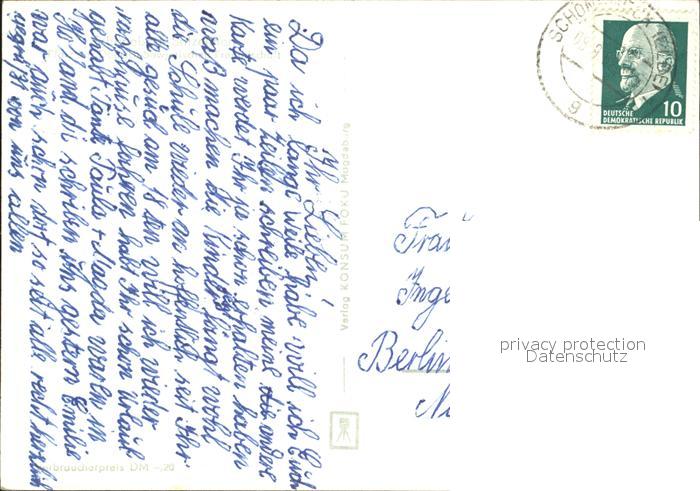 Ihr Lieben!
Da ich lange weile habe will ich Euch
ein paar Zeilen schreiben meine andere
Karte werdet Ihr ja schon erhalten haben
was machen die Kinder fängt wohl
die Schule wieder an hoffentlich seit Ihr
alle gesund am 18 ten will ich wieder
nach hause fahren habt Ihr schon Urlaub
gehabt Tante Paula + Magda waren in
die schreiben Ihr gestern Emilie
war auch schon dort so seit alle recht herzlich
gegrüßt von uns allen
Verlag KONSUM FOKU Magdeburg
Verbraucherpreis DM -,20
DEUTSCHE
DEMOKRATISCHE REPUBLIK
10
Frau
Inge
Berlin
privacy protection
Datenschutz